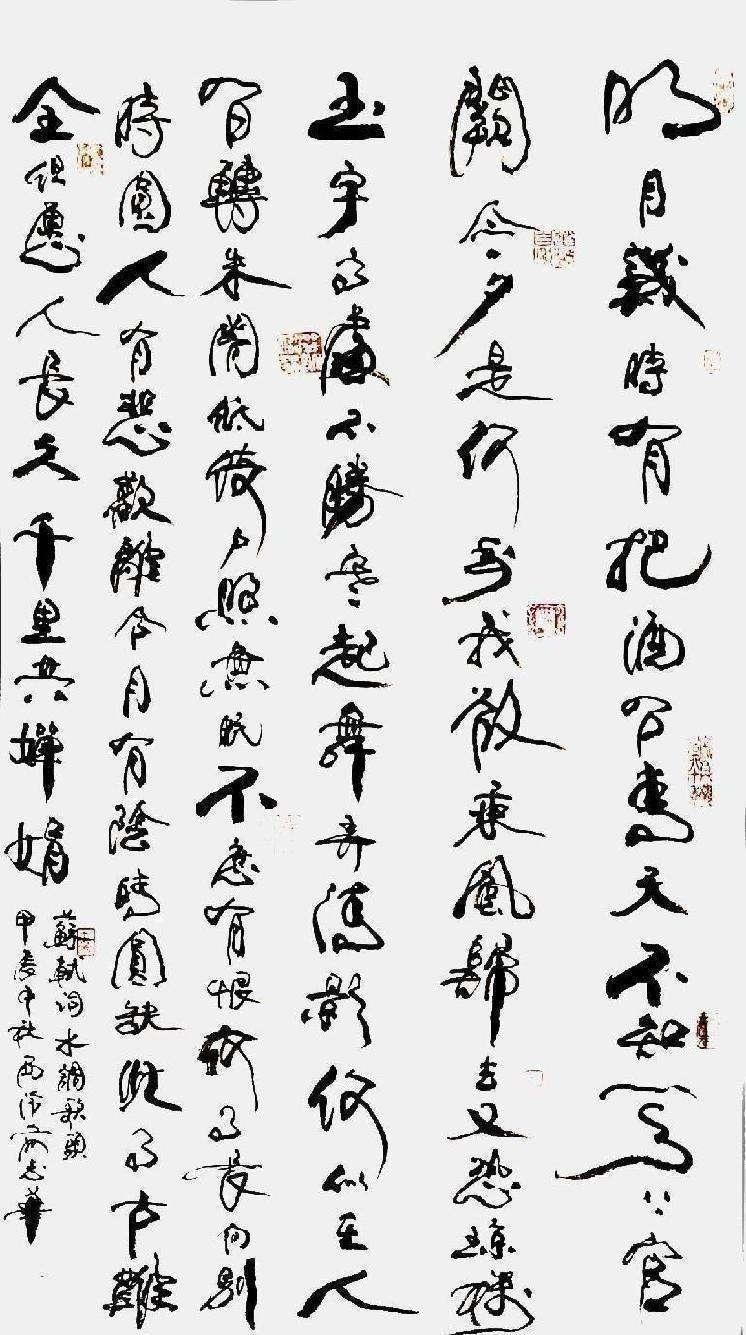 明月幾時有把酒问青天不知天上宫
闕今夕是何年我欲乘風歸去又恐瓊樓
玉宇高處不勝寒起舞弄清影何似在人
间轉朱閣低绮户照無眠不應有恨何事長向别
時圓人有悲歡離合月有陰晴圓缺此事古難
全但愿人長久千里共嬋娟
蘇軾詞水調歌頭
甲辰中秋西泠志華